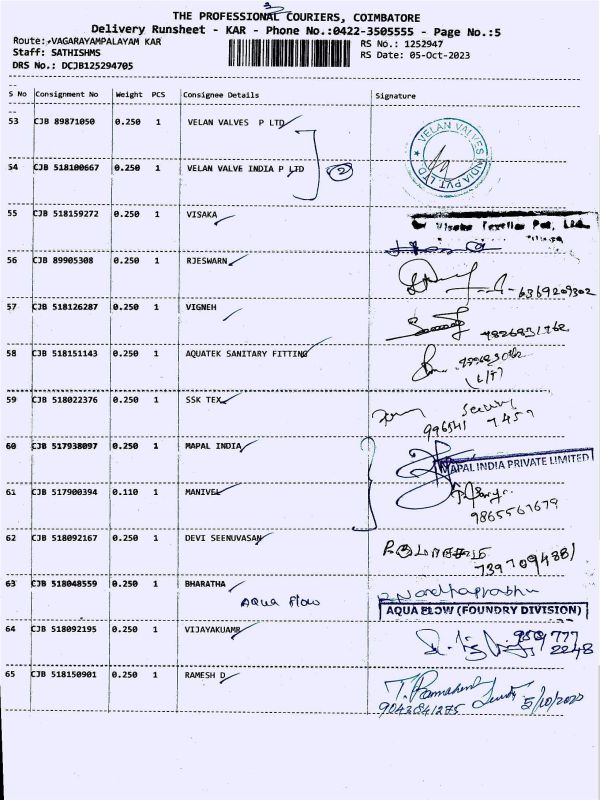 THE PROFESSIONAL COURIERS, COIMBATORE
Delivery Runsheet - KAR - Phone No.:0422-3505555 - Page No.:5
Route:-VAGARAYAMPALAYAM KAR
RS No.: 1252947
Staff: SATHISHMS
RS Date: 05-Oct-2023
DRS No.: DCJB125294705
S No Consignment No Weight PCS Consignee Details Signature
53 CJB 89871050 0.250 1 VELAN VALVES P LTD
VELAN VALVES INDIA PVT LTD
54 CJB 518100667 0.250 1 VELAN VALVE INDIA P LTD 2
55 CJB 518159272 0.250 1 VISAKA
56 CJB 89905308 0.250 1 RJESWARN
6369209302
57 CJB 518126287 0.250 1 VIGNEH
58 CJB 518151143 0.250 1 AQUATEK SANITARY FITTING
59 CJB 518022376 0.250 1 SSK TEX
60 CJB 517938097 0.250 1 MAPAL INDIA
MAPAL INDIA PRIVATE LIMITED
61 CJB 517900394 0.110 1 MANIVEL
9865561679
62 CJB 518092167 0.250 1 DEVI SEENUVASAN
63 CJB 518048559 0.250 1 BHARATHA
Aqua Flow
AQUA FLOW (FOUNDRY DIVISION)
64 CJB 518092195 0.250 1 VIJAYAKUAMR
65 CJB 518150901 0.250 1 RAMESH D
9043841275